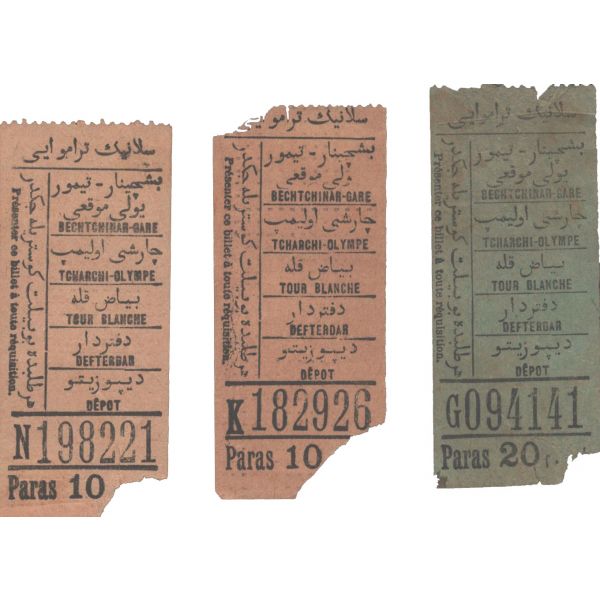 سلانیك تراموایی
بشچینار - تیمور
یولی موقعی
BECHTCHINAR-GARE
چارشی اولیمپ
TCHARCHI-OLYMPE
بیاض قله
TOUR BLANCHE
دفتردار
DEFTERDAR
دیپوزیتو
DÉPOT
هر طلبده بو بیلت كوستریله جكدر
Présenter ce billet à toute réquisition.
N198221
Paras 10
سلانیك تراموایی
بشچینار - تیمور
یولی موقعی
BECHTCHINAR-GARE
چارشی اولیمپ
TCHARCHI-OLYMPE
بیاض قله
TOUR BLANCHE
دفتردار
DEFTERDAR
دیپوزیتو
DÉPOT
هر طلبده بو بیلت كوستریله جكدر
Présenter ce billet à toute réquisition.
K182926
Paras 10
سلانیك تراموایی
بشچینار - تیمور
یولی موقعی
BECHTCHINAR-GARE
چارشی اولیمپ
TCHARCHI-OLYMPE
بیاض قله
TOUR BLANCHE
دفتردار
DEFTERDAR
دیپوزیتو
DÉPOT
هر طلبده بو بیلت كوستریله جكدر
Présenter ce billet à toute réquisition.
G094141
Paras 20